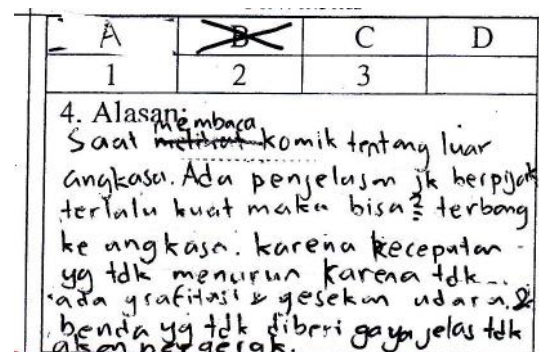 A B C D
1 2 3
4. Alasan:
Saat membaca komik tentang luar
angkasa. Ada penjelasan jk berpijak
terlalu kuat maka bisa2 terbang
ke angkasa. karena kecepatan
yg tdk menurun karena tdk
ada grafitasi & gesekan udara. &
benda yg tdk diberi gaya jelas tdk
akan bergerak.